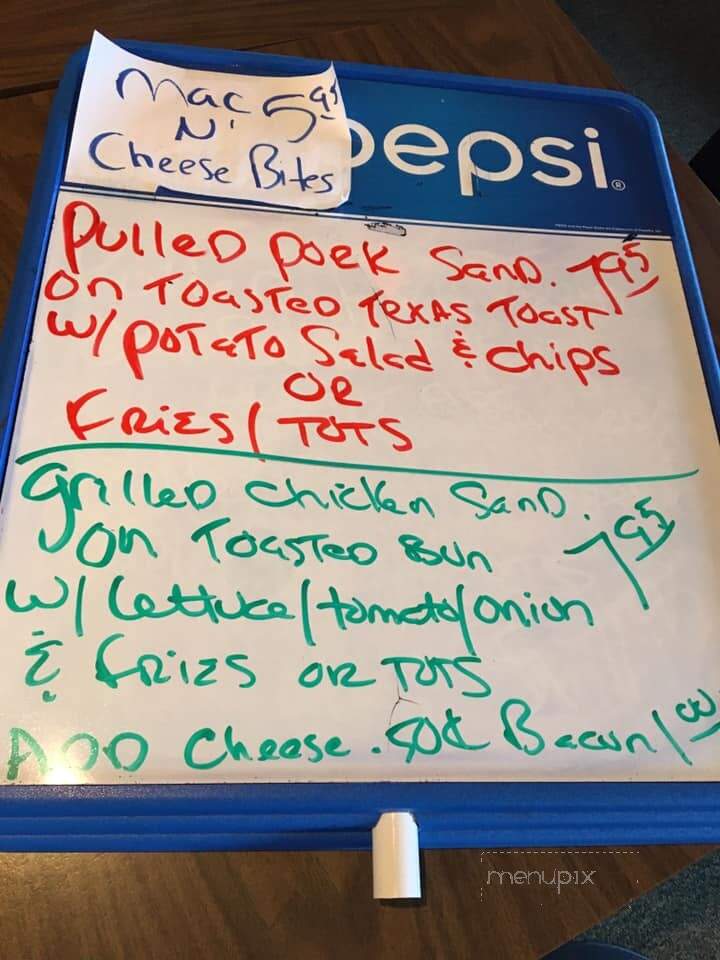 Mac 5.95
N'
Cheese Bites
pepsi®
Pulled pork Sand. 7.95
on Toasted Texas Toast
w/ potato Salad & chips
or
Fries / Tots
Grilled chicken Sand.
on Toasted Bun 7.95
w/ lettuce/tomato/onion
& Fries or Tots
Add Cheese .50¢ Bacon 1.00
menupix